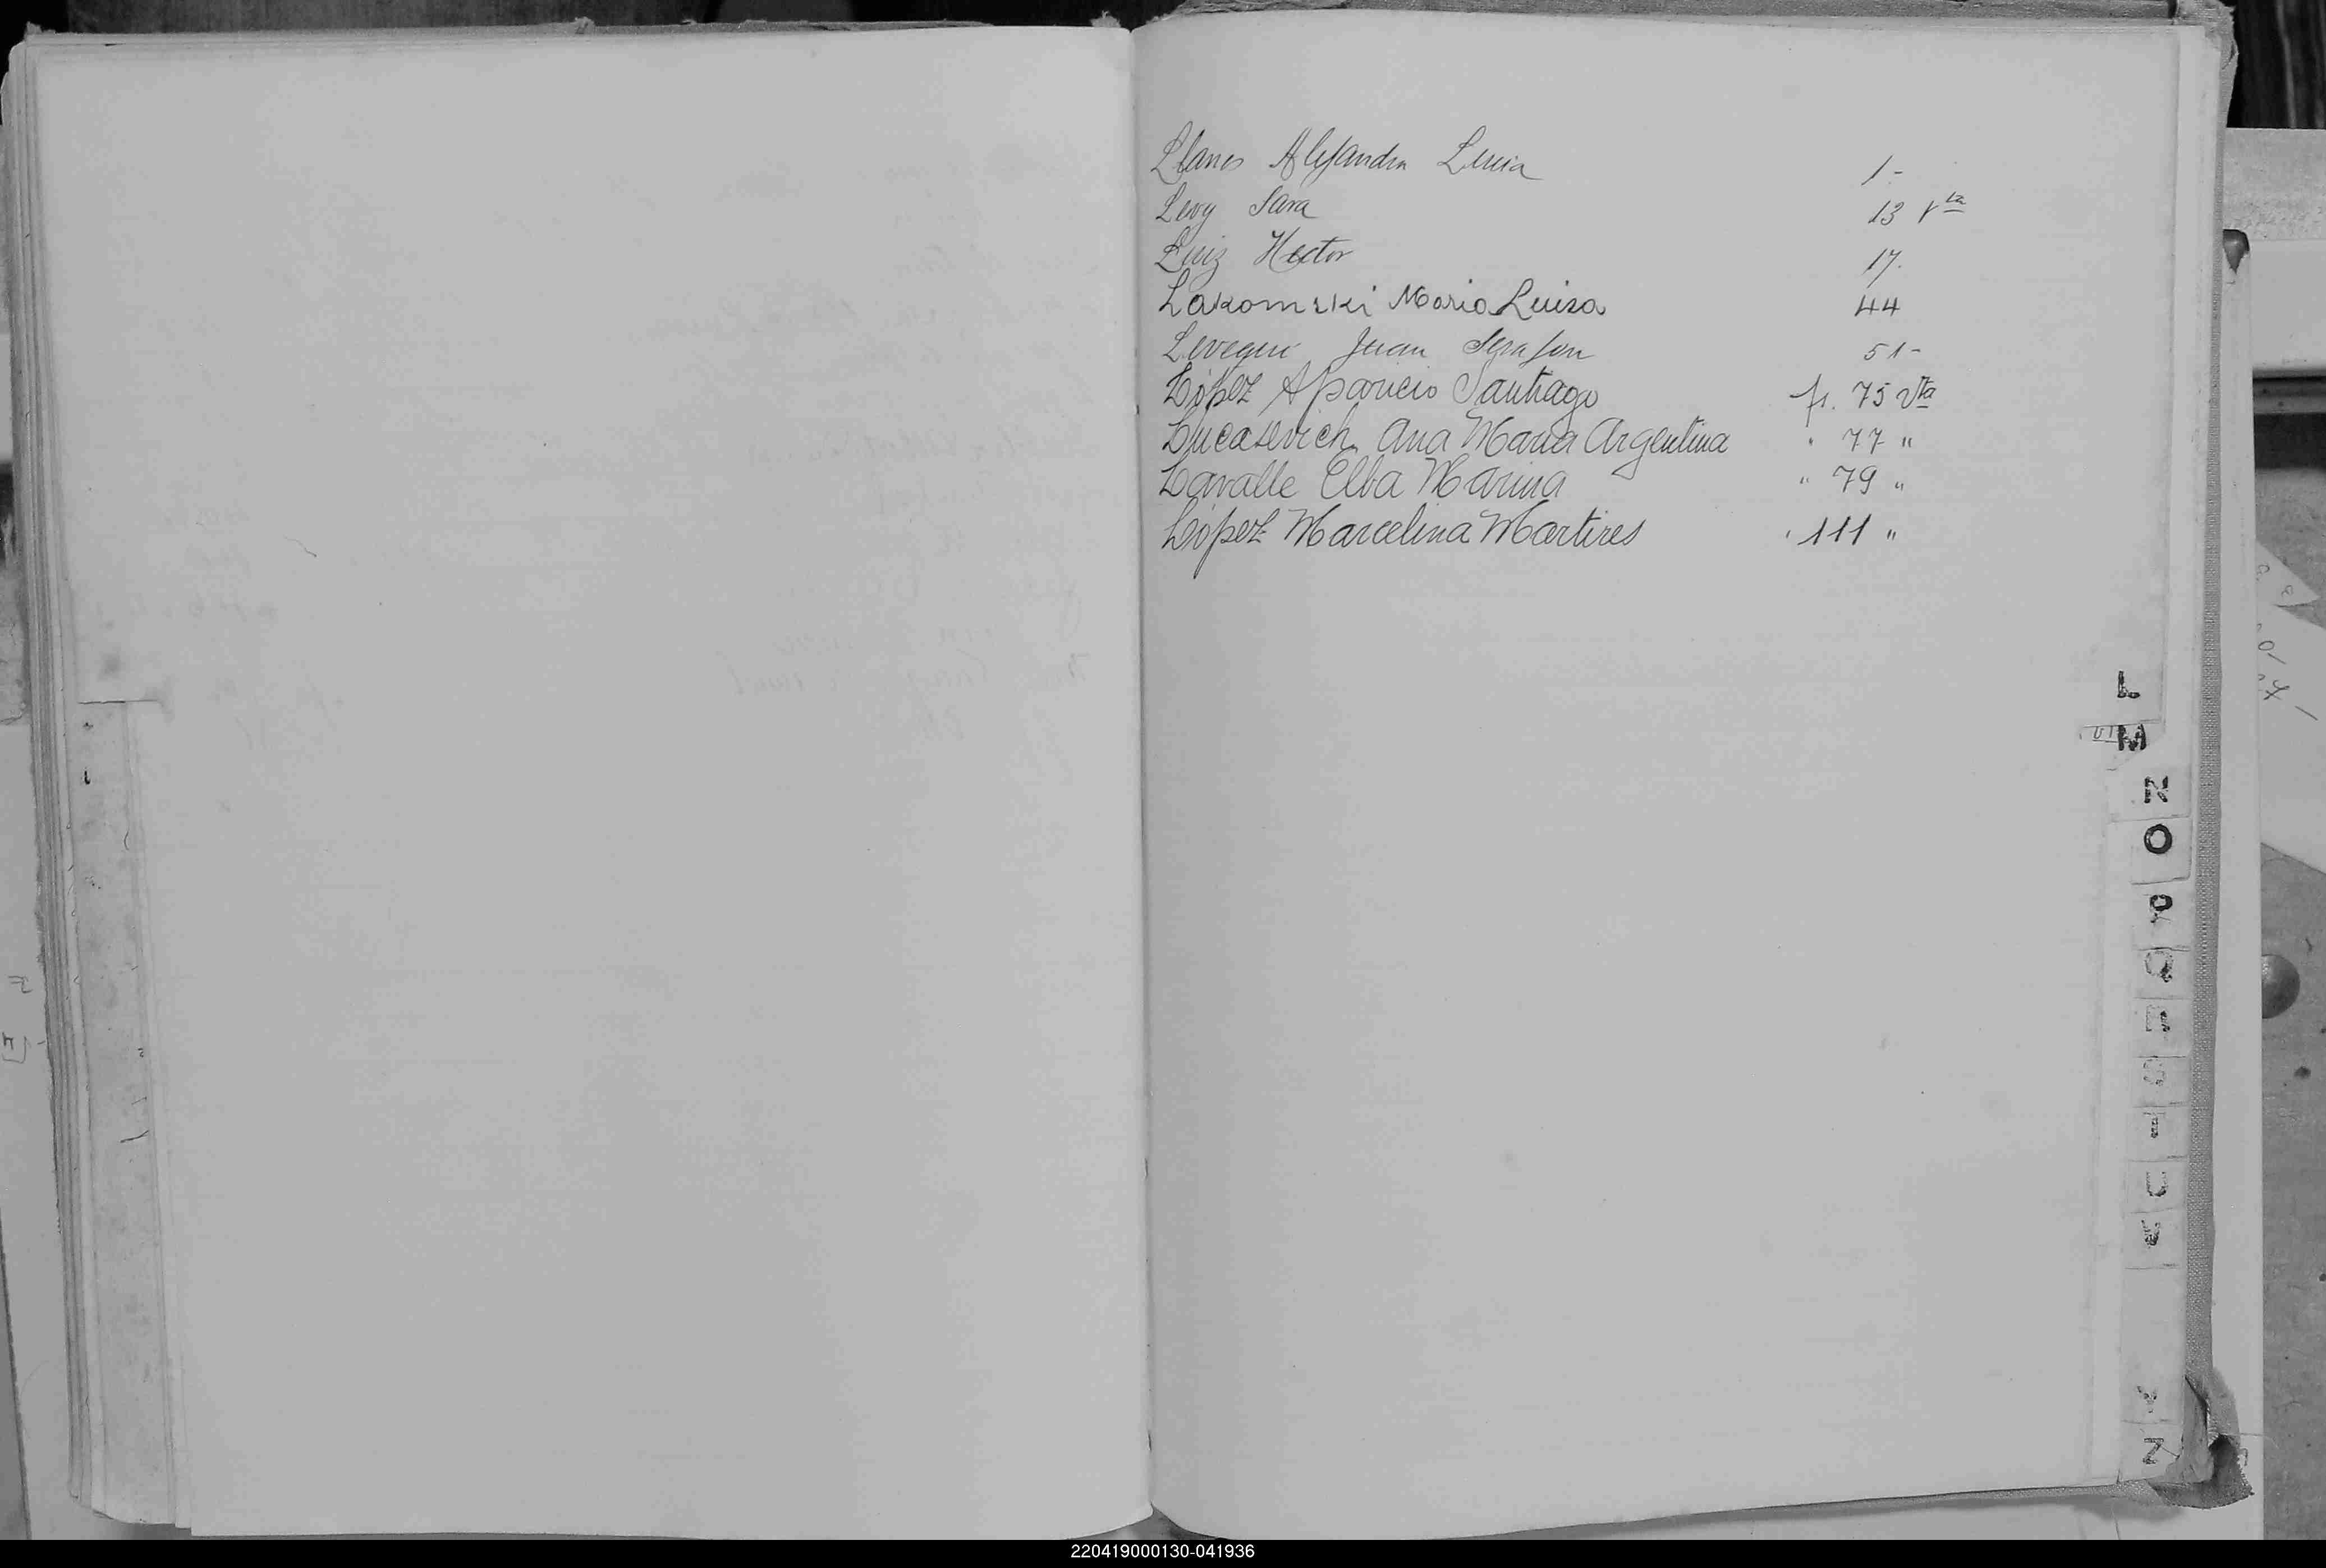 Llanes Alejandra Lucia 1-
Levy Sara 13 vta
Luiz Hector 17.
Lakomski Maria Luisa 44
Levequi Juan 51-
López Aparicio Santiago fs. 75 vta
Lucasevich Ana Maria Argentina " 77 "
Lavalle Elba Marina " 79 "
López Marcelina Martires " 111 "
L
M
N
O
P
Q
R
S
T
U
V
Y
Z
220419000130-041936